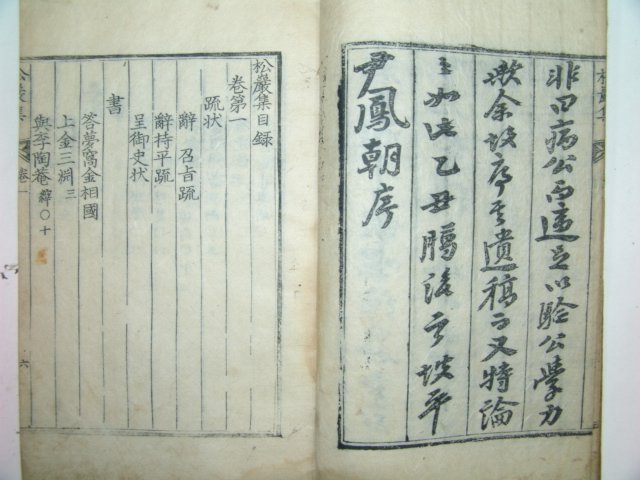 非曰病公而適足以驗公學力
歟余故序其遺稿而又特論
之如此乙丑臘後 坡平
尹鳳朝序
松巖集目録
卷第一
疏状
辭 召旨疏
辭持平疏
呈御史状
書
答夢窩金相國
上金三淵 三
與李陶菴 縡○十
卷一
六